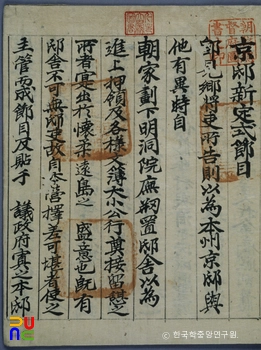 京邸新定式節目
卽見鄉將吏所告則以爲本州京邸與
他有異特自
朝家劃下明洞院廡刱置邸舍以爲
進上押領及各樣文簿大小公行奠接留變
所者寔出於懷柔遠島之 盛意也旣有
邸舍不可無邸吏故自今營擇差可堪者使之
主管而成節目及貼于 議政府實以本邸
© 한국학중앙연구원